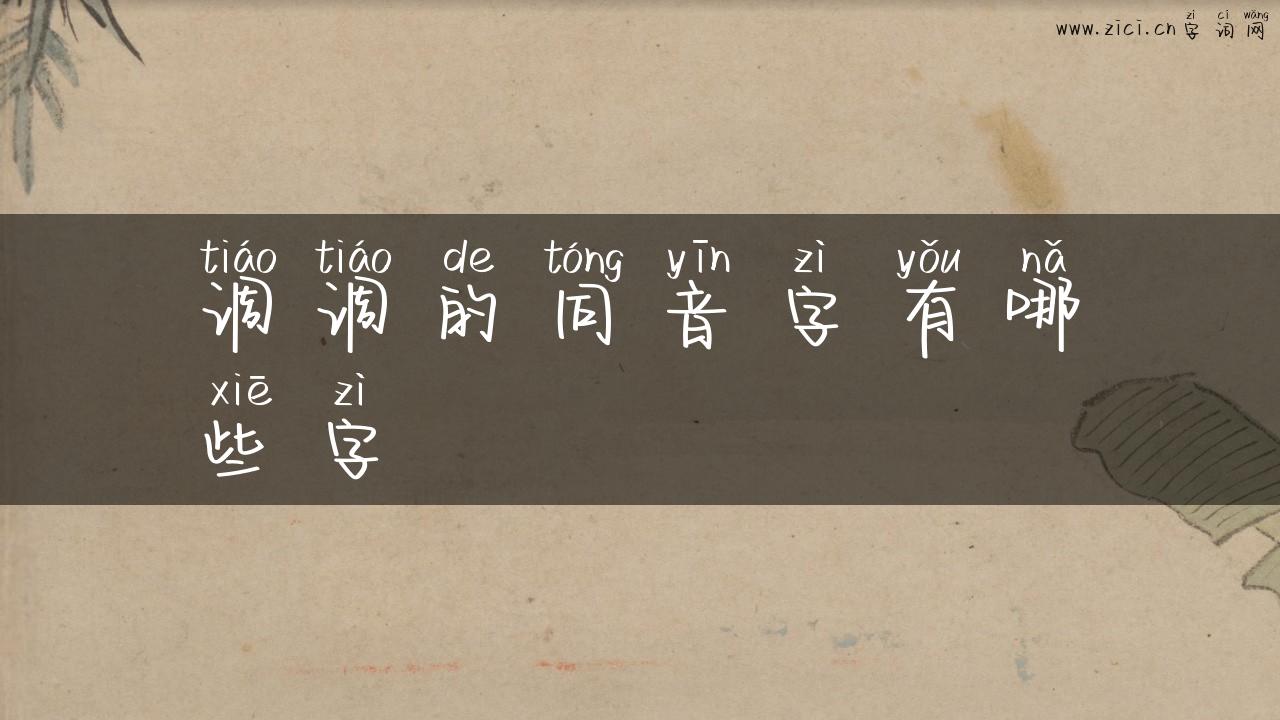 zì cí wǎng
www.zici.cn 字词网
tiáo tiáo de tóng yīn zì yǒu nǎ
调调的同音字有哪
xiē zì
些字